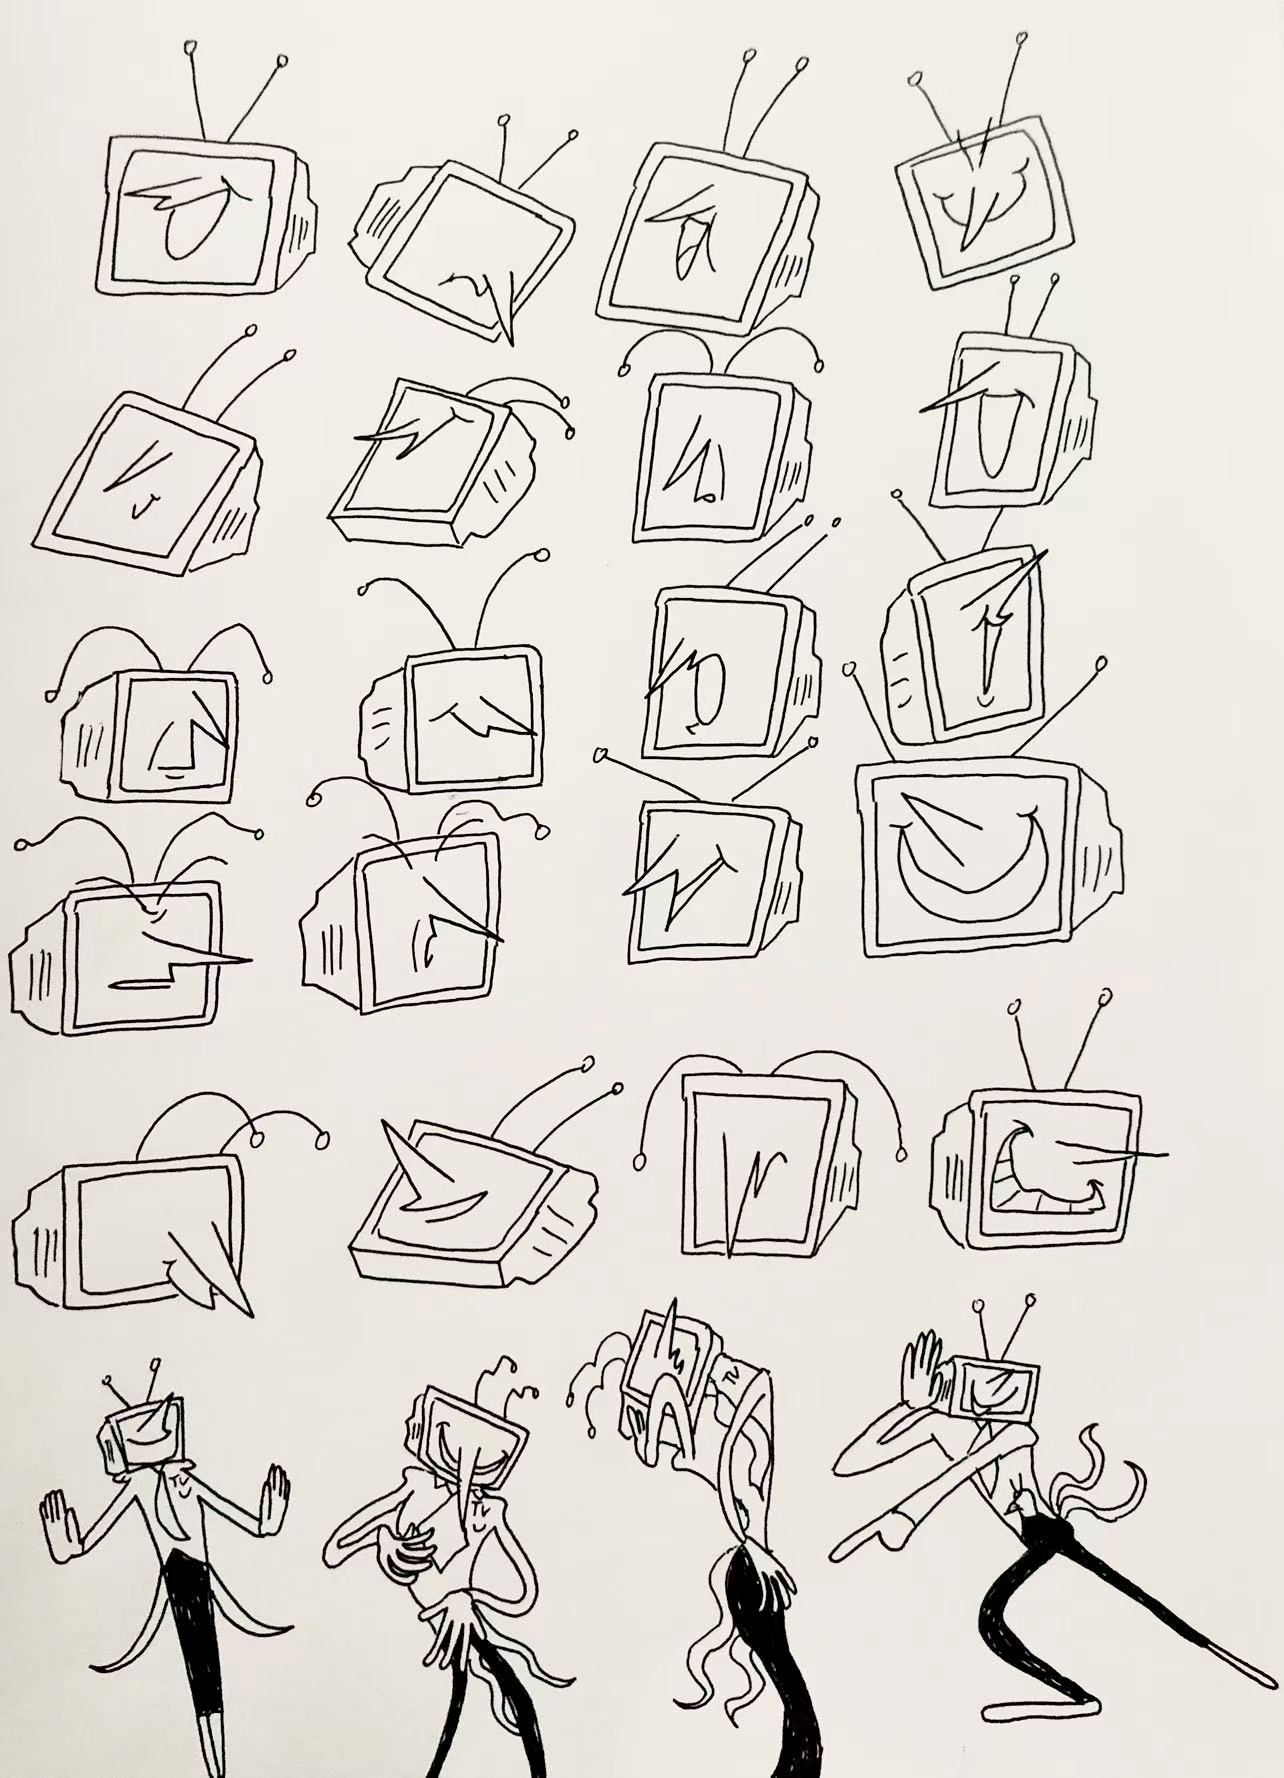 TV
TV
TV